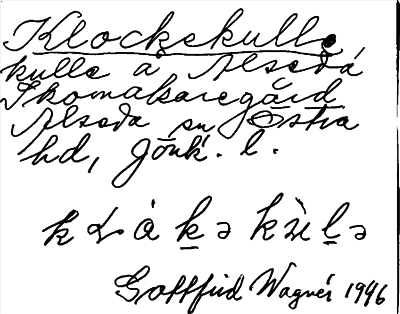 Klockekulle
kulle å Alseda
Skomakaregård
Alseda sn Östra
hd, Jönk. l.
Gottfrid Wagnér 1946